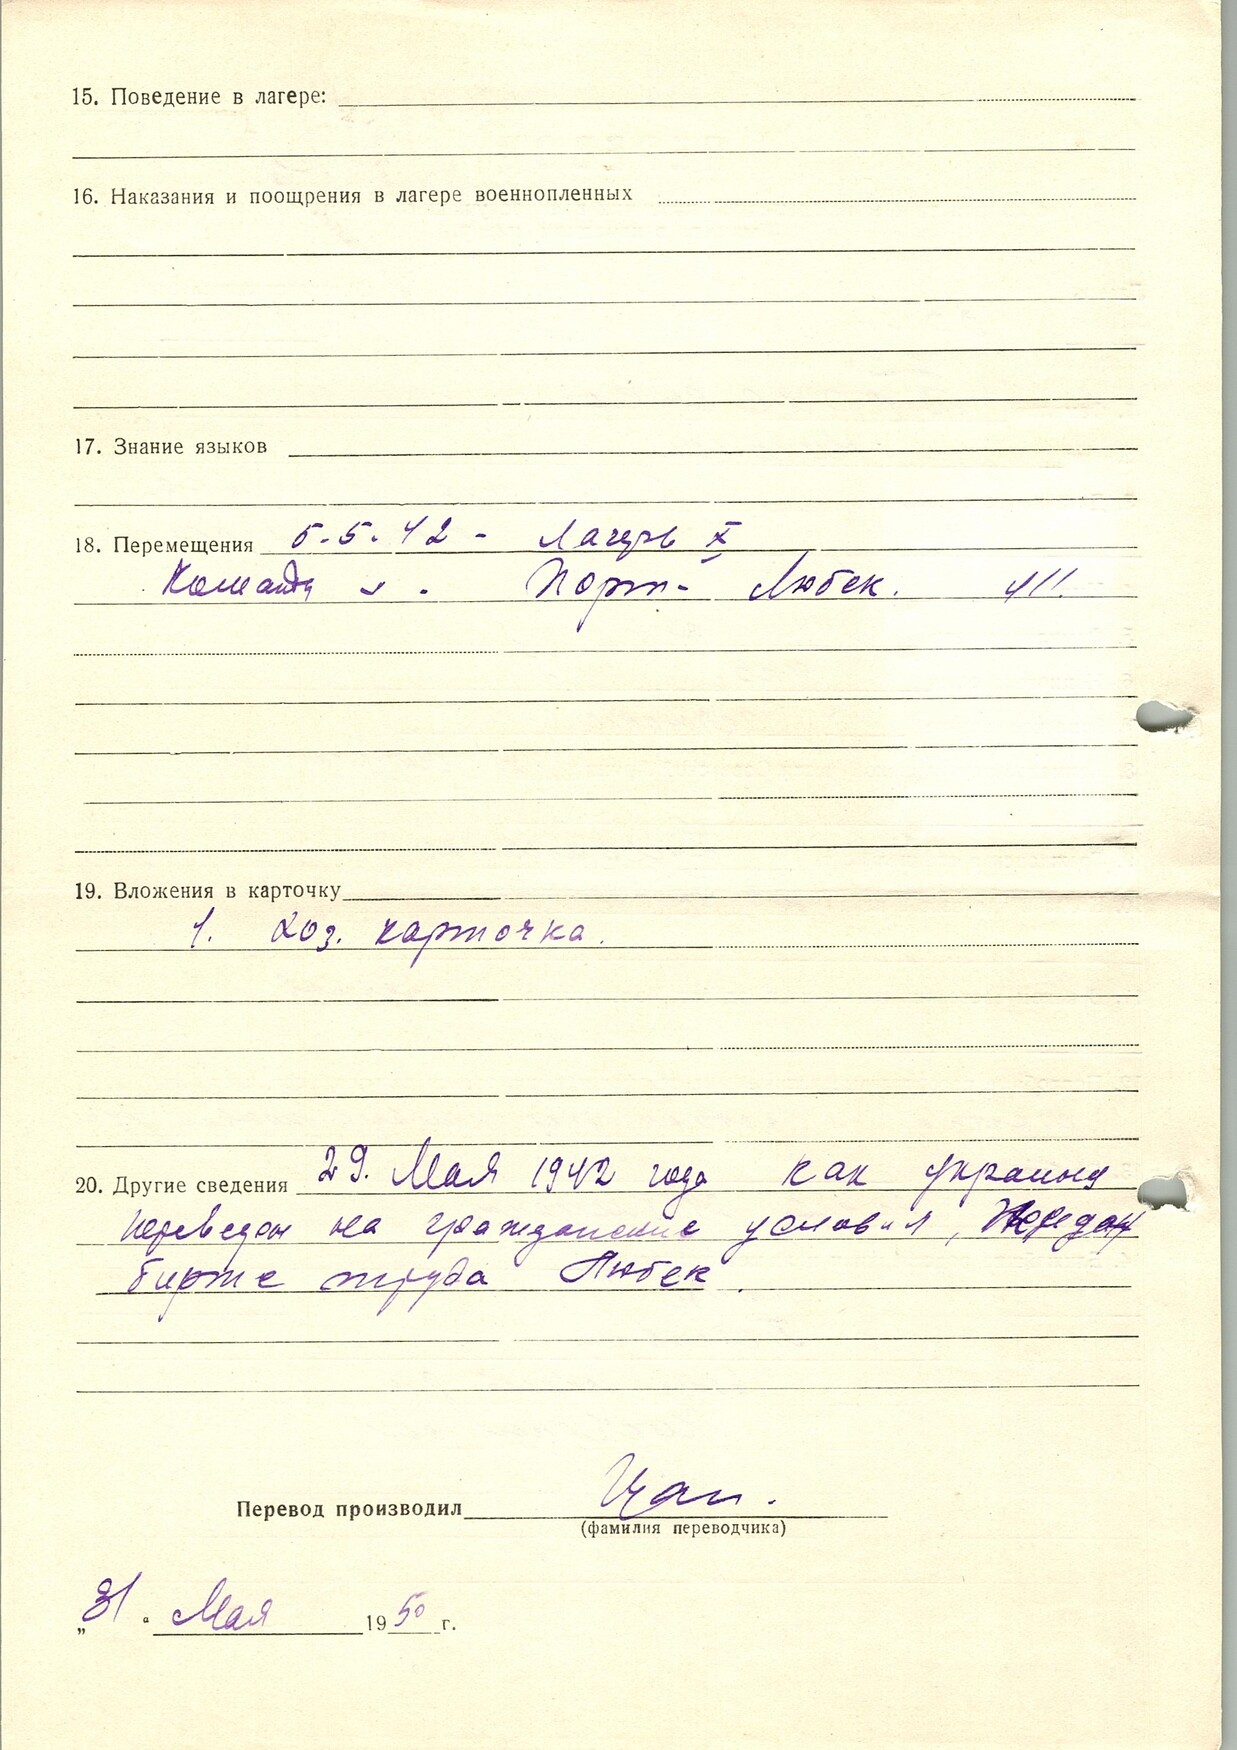 15. Поведение в лагере:
16. Наказания и поощрения в лагере военнопленных
17. Знание языков
18. Перемещения 5.5.42 - Лагерь X
Команда Порт- Любек.
19. Вложения в карточку
1. хоз. карточка.
20. Другие сведения 29. Мая 1942 года как украинец
переведен на гражданские условия, Передан
бирже труда Любек.
Перевод производил
(фамилия переводчика)
„31“ Мая 1950 г.